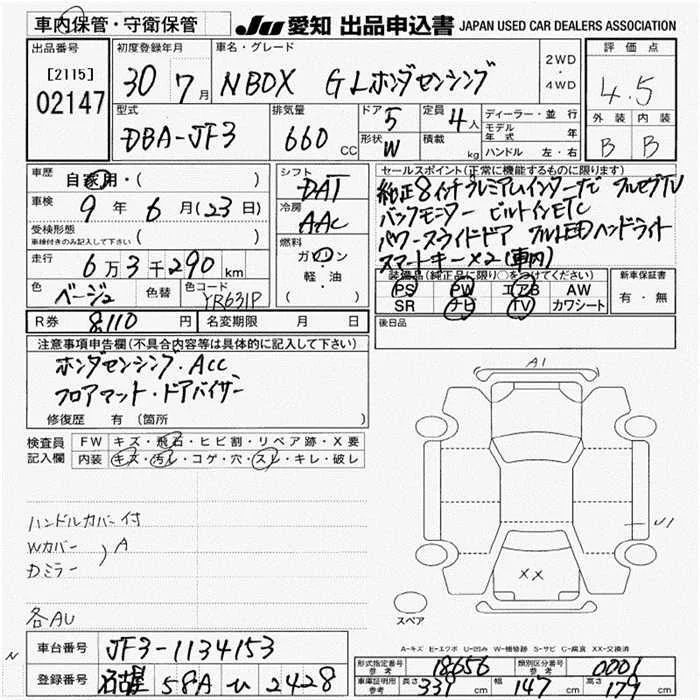 車内保管・守衛保管
JU 愛知 出品申込書 JAPAN USED CAR DEALERS ASSOCIATION
出品番号
[2115]
02147
初度登録年月
30 7月
車名・グレード
NBOX GLホンダセンシング
2WD
・
4WD
評価点
4.5
外装 内装
B B
型式
DBA-JF3
排気量
660 CC
ドア 5
形状 W
定員 4人
積載 kg
ディーラー・並行
モデル年式 年
ハンドル 左・右
車歴 自家用・( )
車検 9年 6月(23日)
受検形態
車検付きのみ記入して下さい ( )
走行 6万3千290km
色 ベージュ 色替 色コード YR631P
シフト
DAT
冷房
AAC
燃料
ガソリン
軽・油
( )
セールスポイント(正常に機能するものに限ります)
純正8インチプレミアムインターナビ フルセグTV
バックモニター ビルトインETC
パワースライドドア フルLEDヘッドライト
スマートキー×2(車内)
装備品(純正品に限り○をつけてください)
PS PW エアB AW
SR ナビ TV カワシート
新車保証書
有・無
R券 8,110円 名変期限 月 日
後日品
注意事項申告欄(不具合内容等は具体的に記入して下さい)
ホンダセンシング・ACC
フロアマット・ドアバイザー
修復歴 有(箇所 )
検査員記入欄
FW キズ・飛石・ヒビ割・リペア跡・X要
内装 キズ・汚レ・コゲ・穴・スレ・キレ・破レ
ハンドルカバー付
Wカバー
Dミラー
A
各AU
A1
U1
XX
スペア
A-キズ E-エクボ U-凹み W-補修跡 S-サビ C-腐食 XX-交換済
N
車台番号 JF3-1134153
登録番号 名古屋 581A い 2428
形式指定番号 参考 18656 類別区分番号 参考 0001
車庫証明用 参考 長さ 339cm 幅 147cm 高さ 179cm